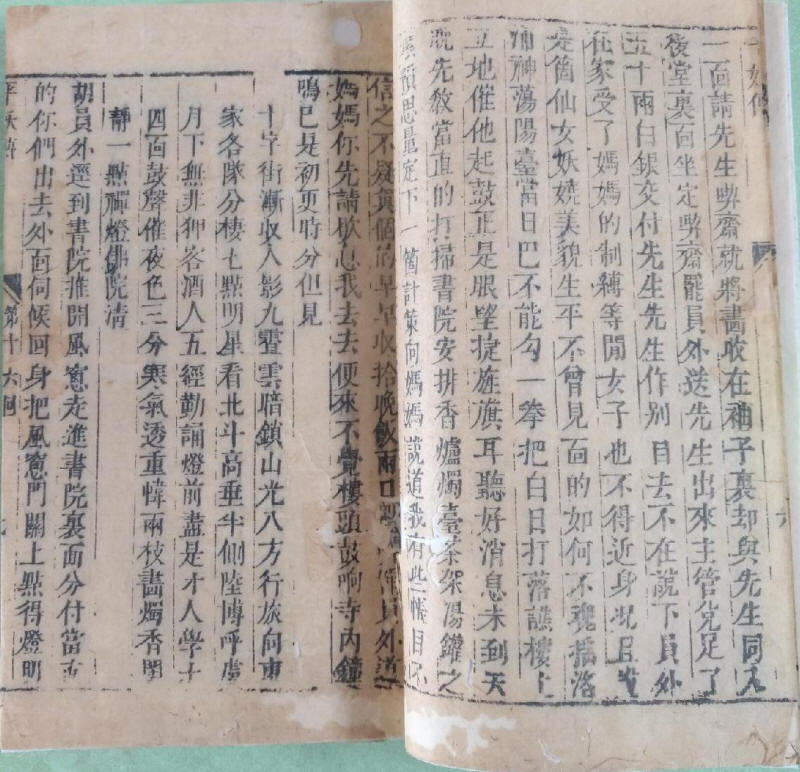 一面請先生喫齋就將畵收在袖子裏却與先生同入
後堂裏面坐定喫齋罷員外送先生出來主管兌足了
五十兩白銀交付先生先生作別自去不在話下員外
在家受了媽媽的制縛等閒女子也不得近身况且
是箇仙女妖嬈美貌生平不曾見面的如何不魂揺
神蕩陽臺當日巴不能勾一拳把白日打落譙樓上
立地催他起鼓正是眼望旌旗耳聽好消息未到天
先敎當直的打掃書院安排香爐燭臺茶架湯鑵之
思量定下一箇計策向媽媽說道我有些帳目不
信之不疑眞個的早早收拾晚飯兩口員外道
媽媽你先請歇息我去去便來不覺樓頭鼓响寺內鐘
鳴已是初更時分但見
十字街漸收人影九霄雲暗鎖山光八方行旅向東
家各隊分棲七點明星看北斗高垂半側陸博呼盧
月下無非狎客酒人五經勤誦燈前盡是才人學士
四面鼓聲催夜色三分寒氣透重幃兩枝畵燭香閨
靜一點禪燈佛院清
胡員外逕到書院推開風窻走進書院裏面分付當直
的你們出去外面伺候回身把風窻門關上點得燈明
平妖傳
第十六囘